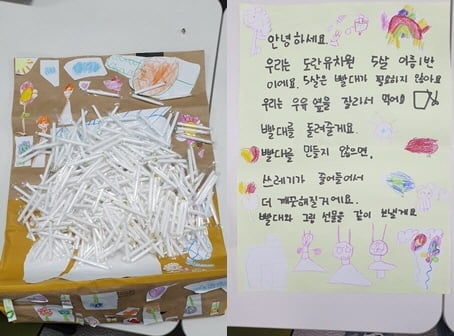 안녕하세요
우리는 도란유치원 5살 이음1반
이에요. 5살은 빨대가 필요하지 않아요
우리는 우유 옆을 잘라서 먹어요
빨대를 돌려줄게요.
빨대를 만들지 않으면,
쓰레기가 줄어들어서
더 깨끗해질거에요.
빨대와 그림 선물을 같이 보낼게요